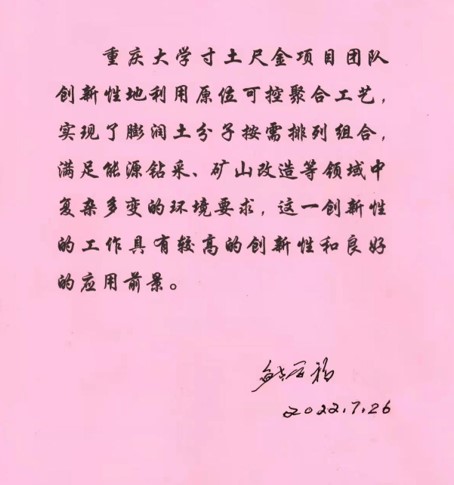 重庆大学寸土尺金项目团队
创新性地利用原位可控聚合工艺，
实现了膨润土分子按需排列组合，
满足能源钻采、矿山改造等领域中
复杂多变的环境要求，这一创新性
的工作具有较高的创新性和良好
的应用前景。
2022.7.26